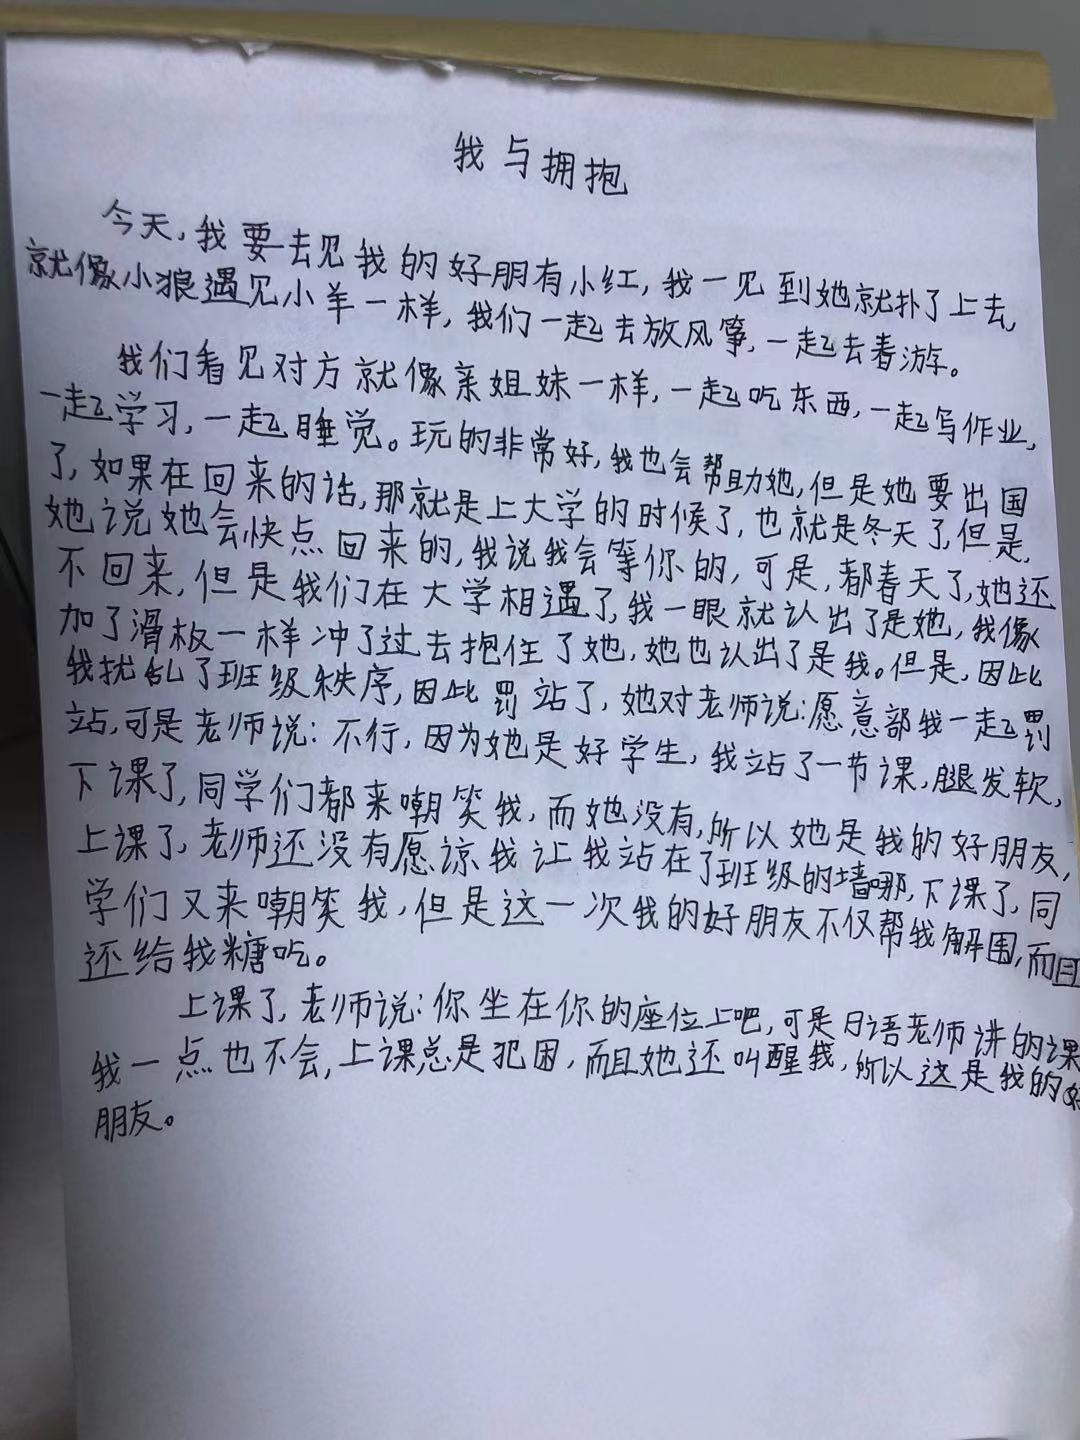 我与拥抱
今天,我要去见我的好朋有小红,我一见到她就扑了上去,
就像小狼遇见小羊一样,我们一起去放风筝,一起去春游。
我们看见对方就像亲姐妹一样,一起吃东西,一起写作业,
一起学习,一起睡觉。玩的非常好,我也会帮助她,但是她要出国
了,如果在回来的话,那就是上大学的时候了,也就是冬天了,但是,
她说她会快点回来的,我说我会等你的,可是,都春天了,她还
不回来,但是我们在大学相遇了,我一眼就认出了是她,我像
加了滑板一样冲了过去抱住了她,她也认出了是我。但是,因此
我扰乱了班级秩序,因此罚站了,她对老师说:愿意部我一起罚
站,可是老师说:不行,因为她是好学生,我站了一节课,腿发软,
下课了,同学们都来嘲笑我,而她没有,所以她是我的好朋友,
上课了,老师还没有愿谅我让我站在了班级的墙哪,下课了,同
学们又来嘲笑我,但是这一次我的好朋友不仅帮我解围,而且
还给我糖吃。
上课了,老师说:你坐在你的座位上吧,可是日语老师讲的课
我一点也不会,上课总是犯困,而且她还叫醒我,所以这是我的好
朋友。